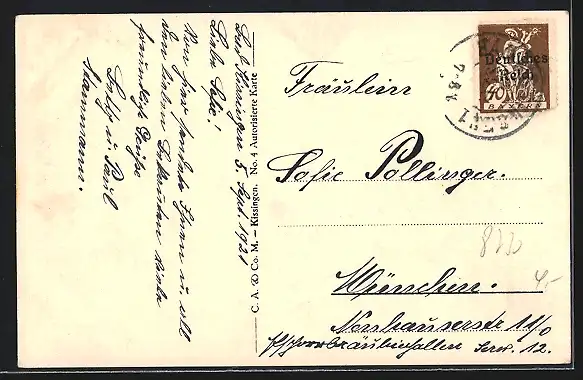 Bad Kissingen 5. Sept. 1921
Liebe Sofie!
Von hier sendet Ihnen u. all
den lieben Bekannten viele
freundliche Grüße
Betty u. Paul
Stammann.
C. A. & Co. M. – Kissingen. No. 4 Autorisierte Karte
Deutsches
Reich
40
BAYERN
Fräulein
Sofie Pollinger.
München.
Neuhauserstr 11/0
Pschorrbräubierhallen Serv. 12.